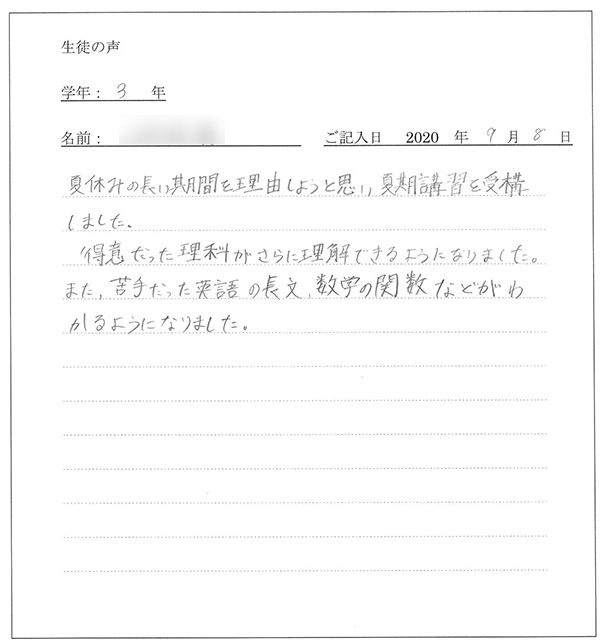 生徒の声
学年： 3 年
名前： ご記入日 2020 年 9 月 8 日
夏休みの長い期間を理由しようと思い，夏期講習を受構
しました．
得意だった理科がさらに理解できるようになりました。
また，苦手だった英語の長文，数学の関数などがわ
かるようになりました。